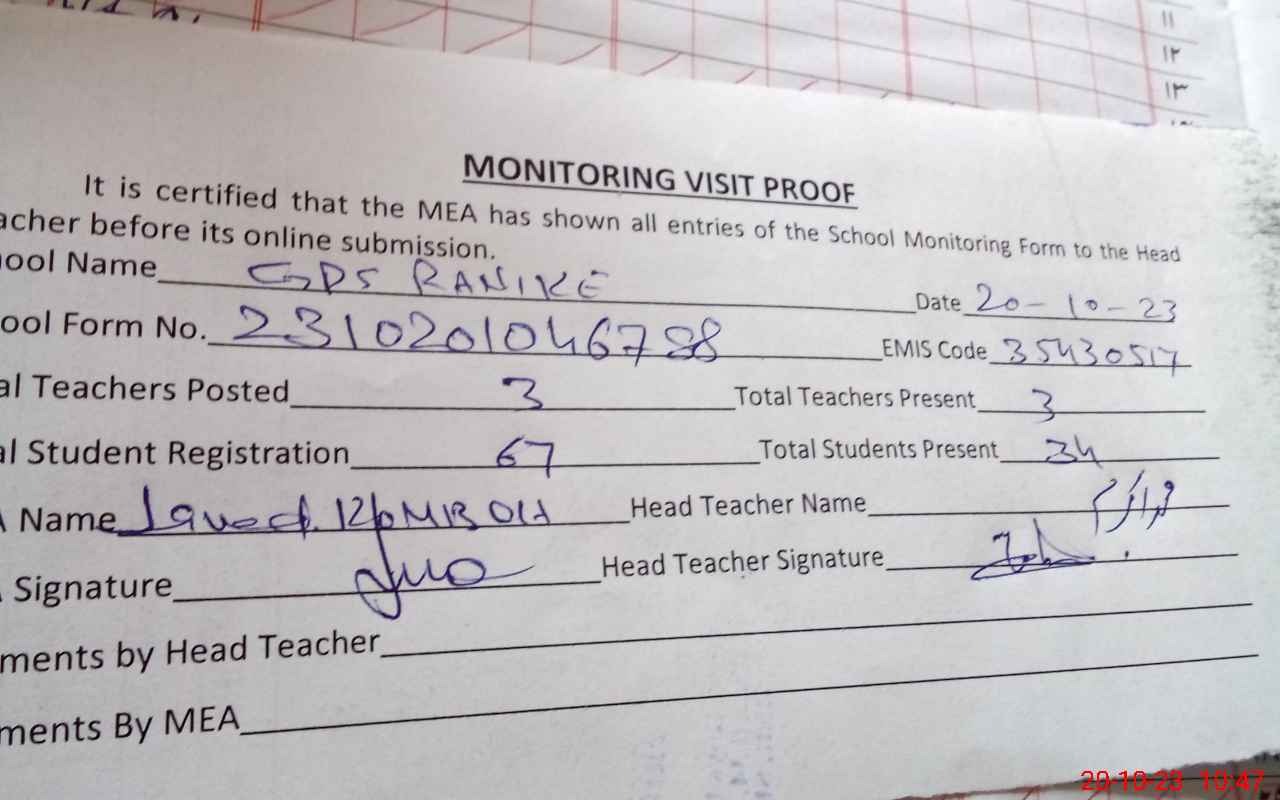 ١١
١٢
١٣
MONITORING VISIT PROOF
It is certified that the MEA has shown all entries of the School Monitoring Form to the Head
acher before its online submission.
ool Name GPS RANIKE
Date 20-10-23
ool Form No. 2310201046788
EMIS Code 35430517
al Teachers Posted 3
Total Teachers Present 3
al Student Registration 67
Total Students Present 34
Name Javed
Head Teacher Name
Signature
Head Teacher Signature
ments by Head Teacher
ments By MEA
20-10-23 10:47